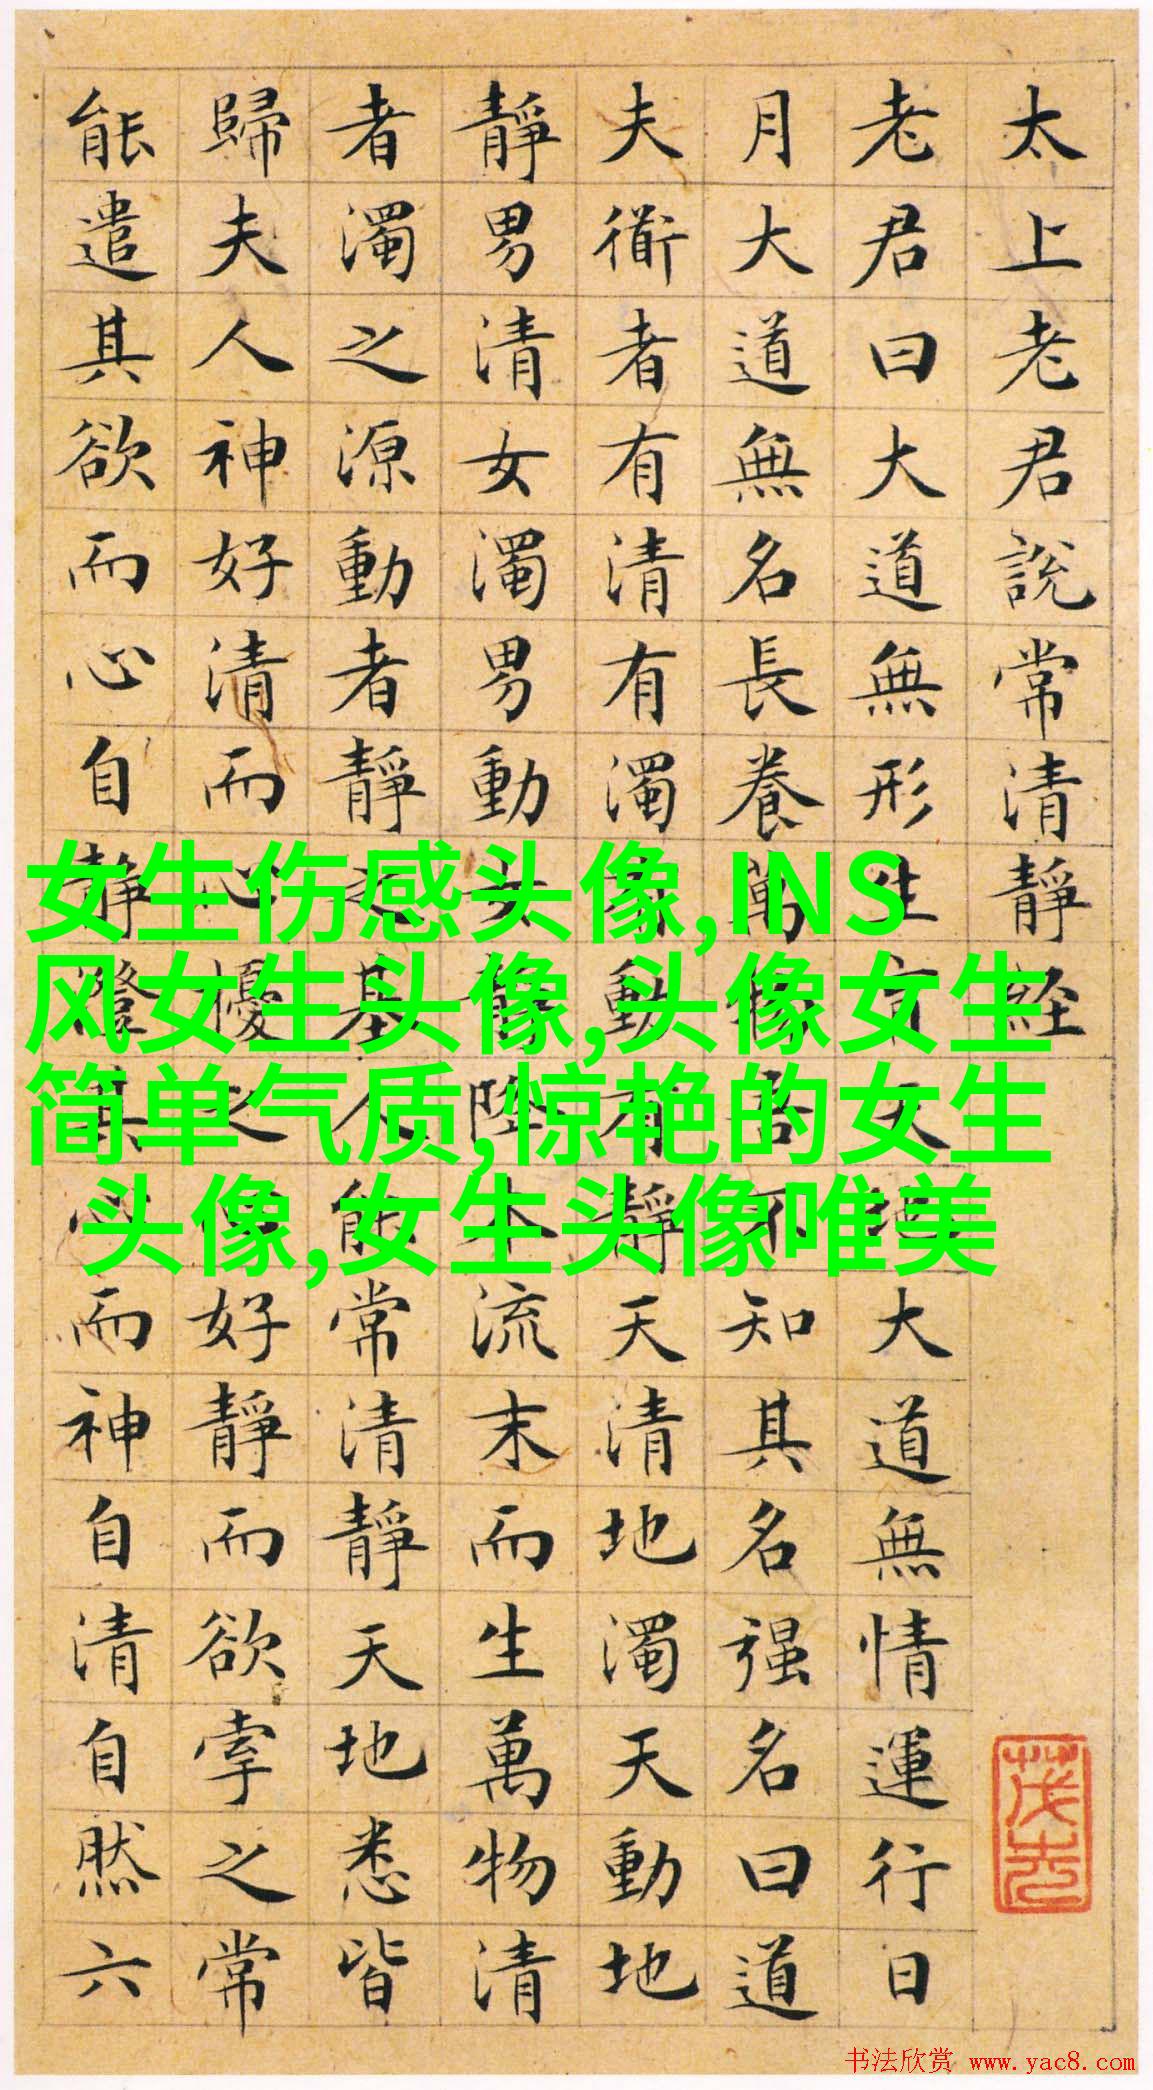 太上老君說常清靜経
老君曰大道無形生育天地大道無情運行日
月大道無名長養萬物吾不知其名强名曰道
夫衜者有清有濁有動有靜天清地濁天動地
靜男清女濁男動女靜降本流末而生萬物清
者濁之源動者靜之基人能常清靜天地悉皆
歸夫人神好清而心擾之心好靜而欲牽之常
能遣其欲而心自靜澄其心而神自清自然六
女生伤感头像,INS
风女生头像,头像女生
简单气质,惊艳的女生
头像,女生头像唯美
书法欣赏 www.yac8.com